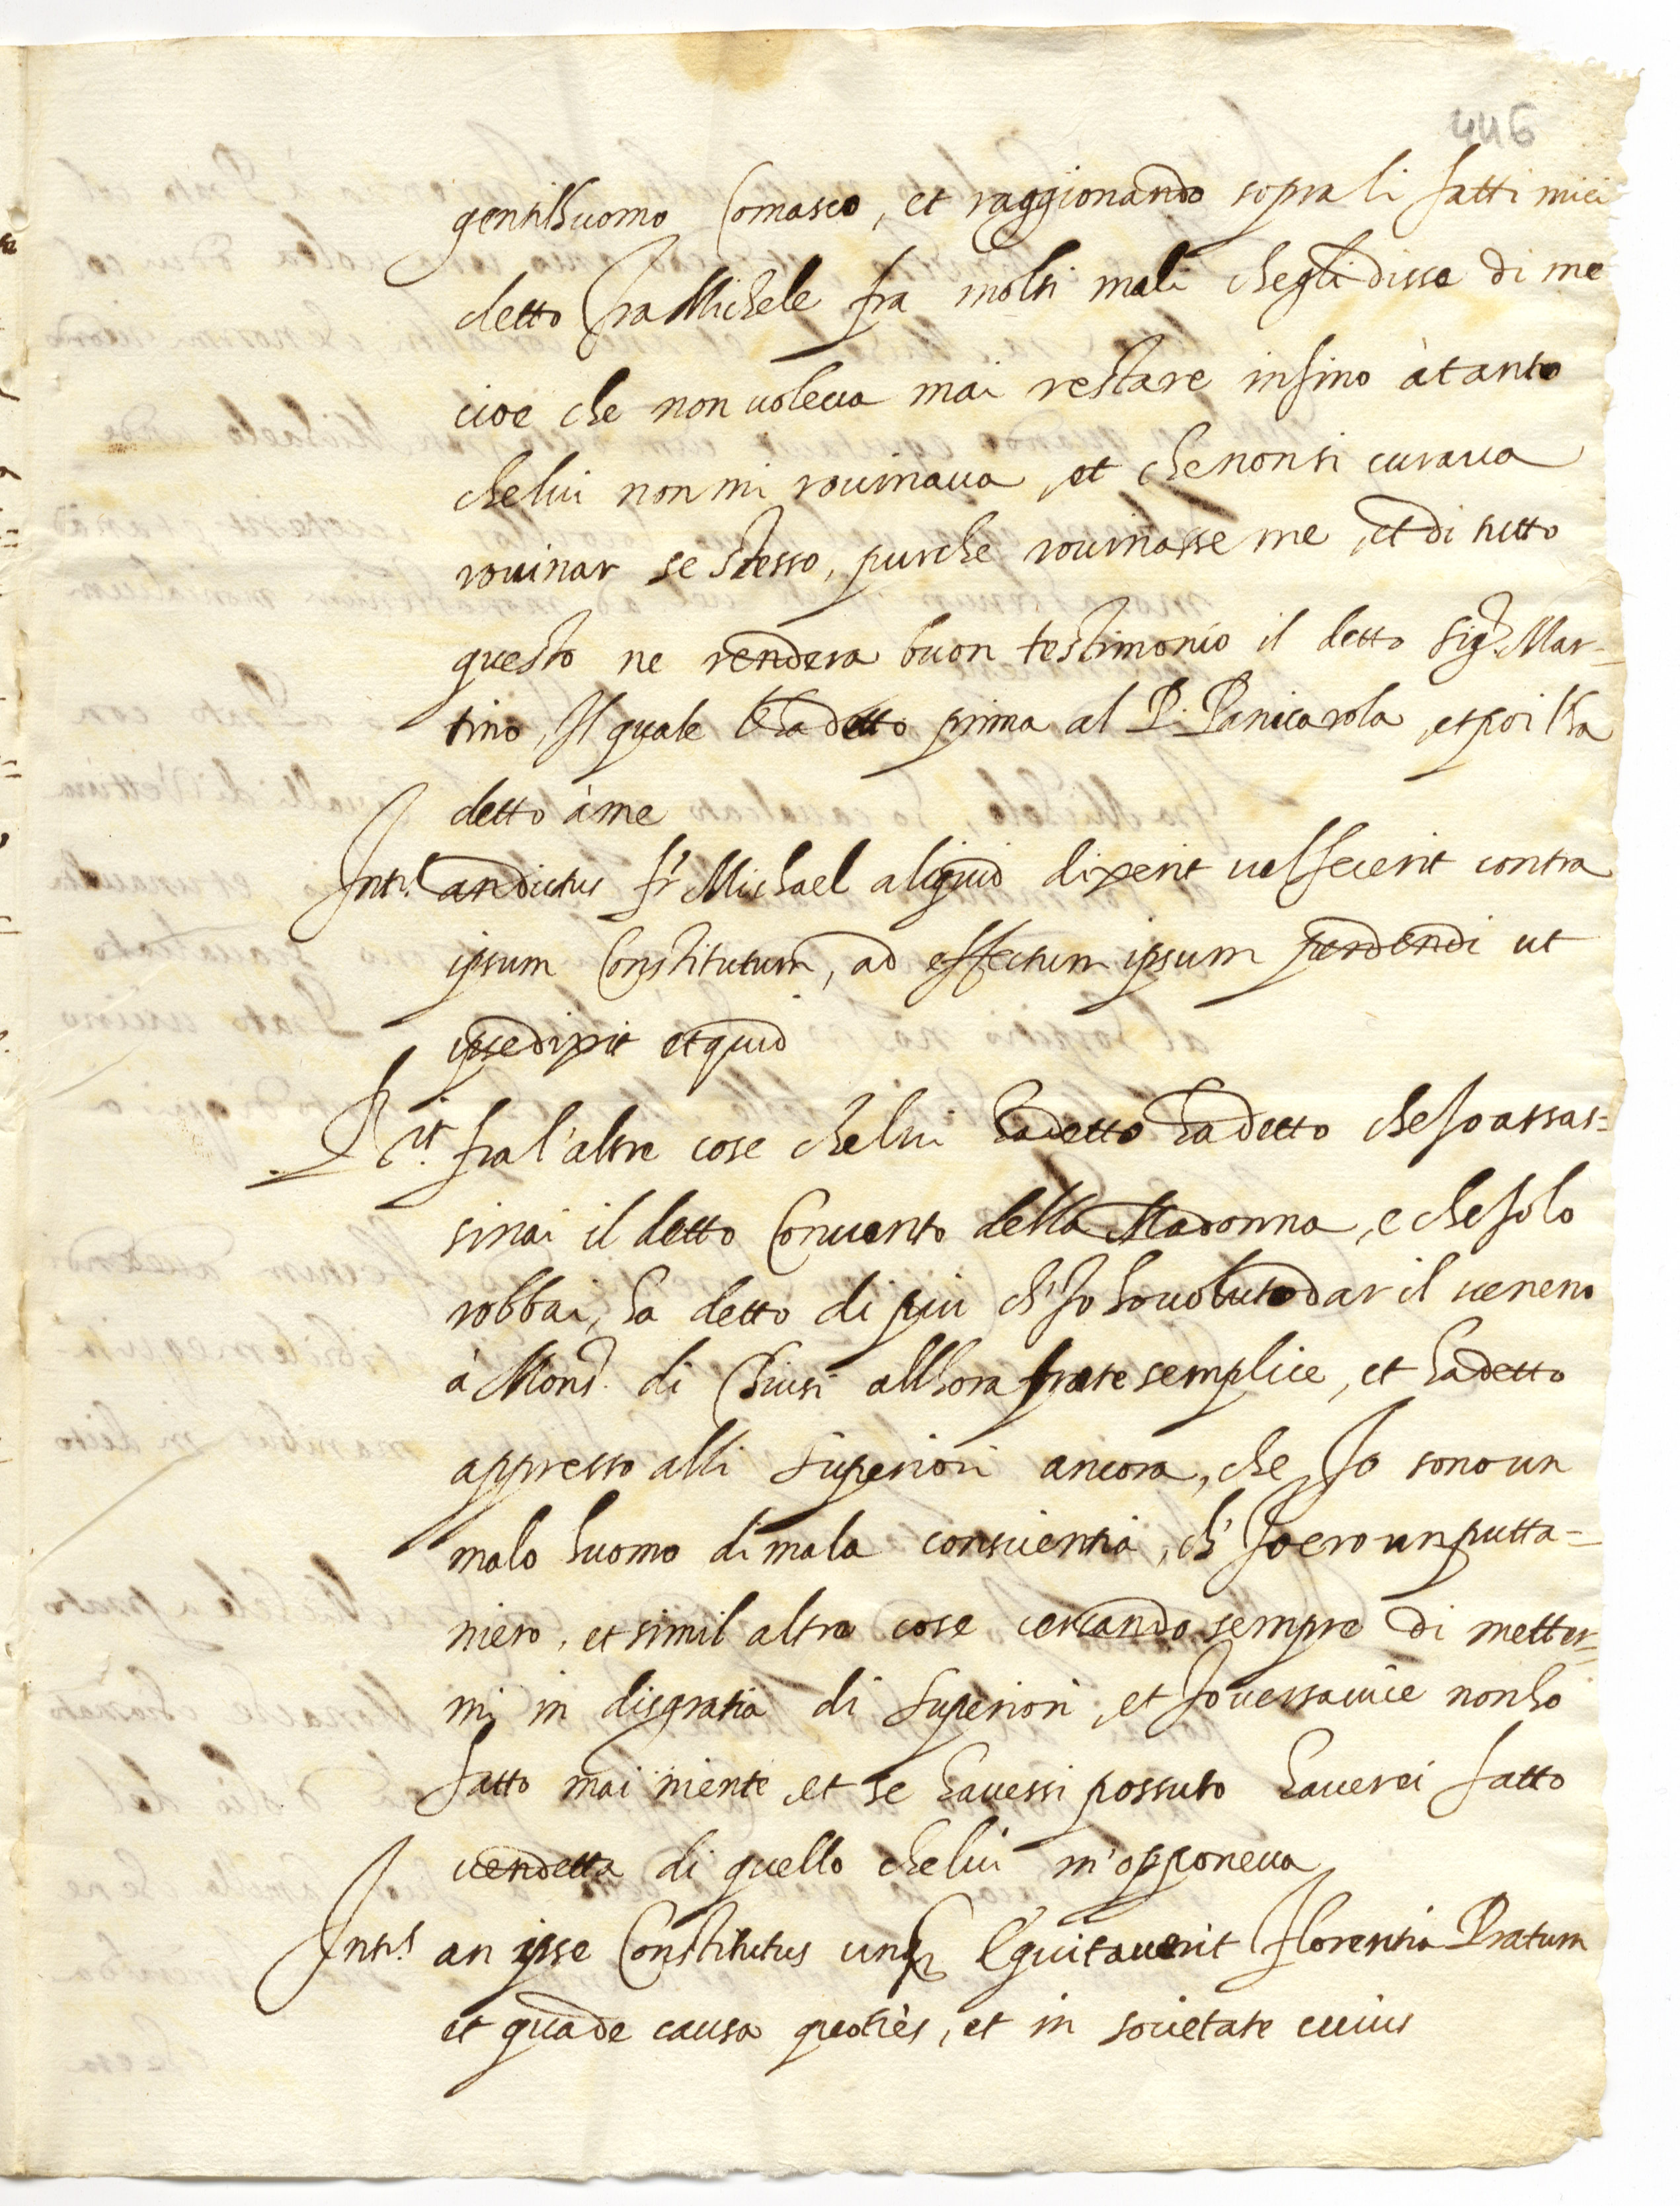 446
gentilhuomo Comasco, et raggionando sopra li fatti miei
detto fra Michele fra molti mali che gli disse di me
cioe che non voleva mai restare insino à tanto
che lui non mi rouinaua, et che non si curaua
rouinar se stesso, purche rouinasse me, et di tutto
questo ne rendera buon testimonio il detto Sig.r Mar=
tino, Il quale l'ha detto prima al P. Panicarola, et poi l'ha
detto à me
Int.s an dictus fr Michael aliquid dixerit uel fecerit contra
ipsum Constitutum, ad effectum ipsum perdendi ut
ipse dixit et quid
R.it fra l'altre cose che lui ha detto ha detto che Io assas=
sinai il detto Conuento della Madonna, e che Io lo
robbai, ha detto di piu ch'Io ho uoluto dar il ueneno
à Mons.r di Chiusi allhora frate semplice, et ha detto
appresso alli Superiori ancora, che Io sono un
malo huomo di mala conscientia, ch' Io ero un putta=
niero, et simil altre cose cercando sempre di metter=
mi in disgratia di Superiori, et Io uersa uice non ho
fatto mai niente, et se hauessi possuto hauerei fatto
uendetta di quello che lui m'opponeua
Int.s an ipse Constitutus unq Equitauerit Florentia Pratum
et qua de causa quoties, et in societate cuius